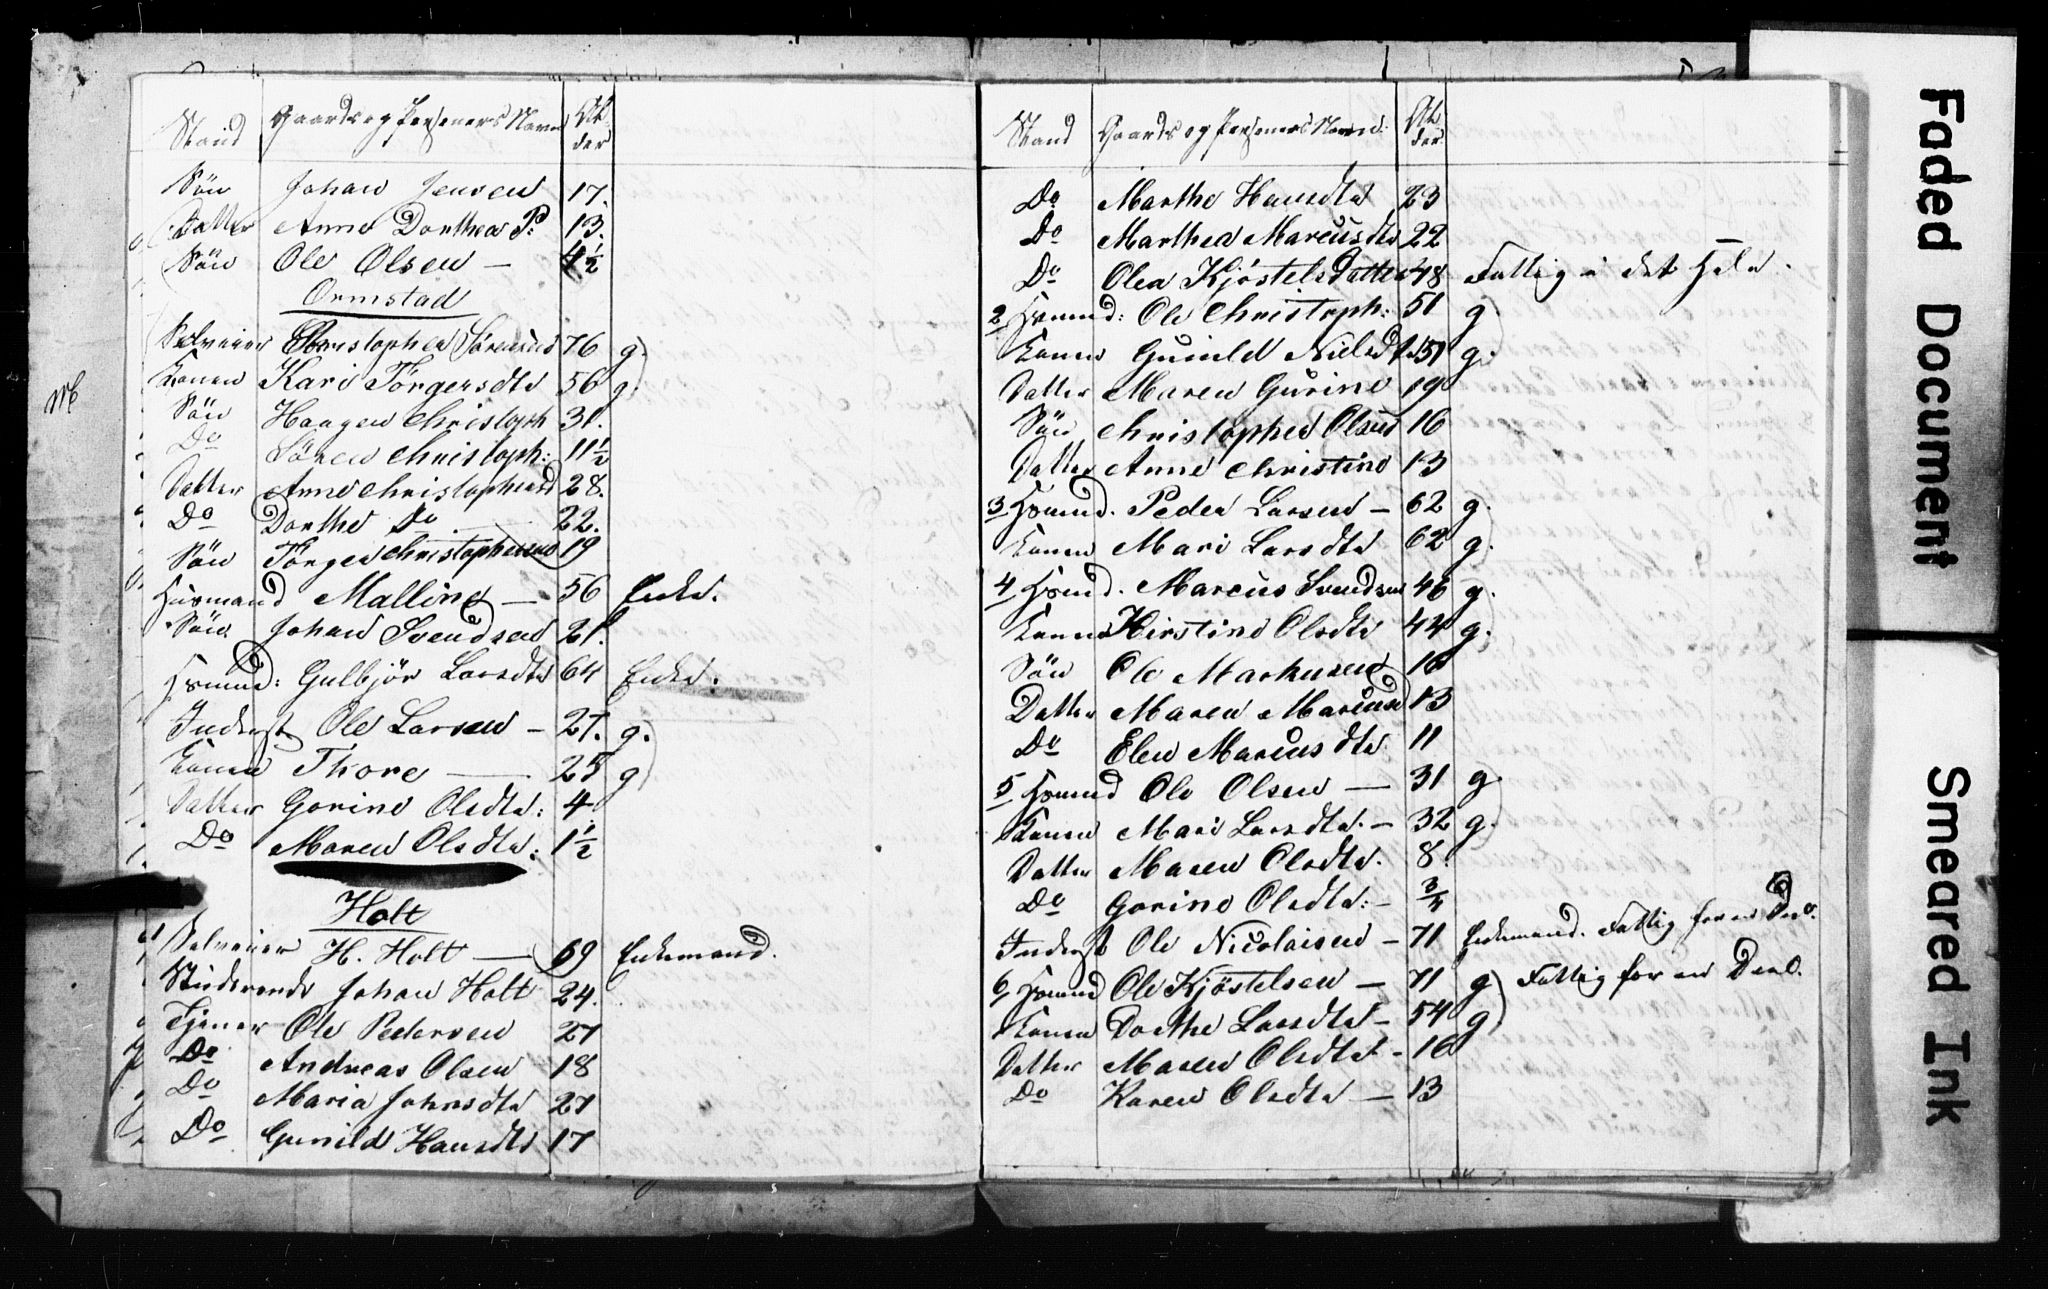 Stand Gaards og Personers Navne Al-
der
Sön Johan Jensen 17.
Datter Anne Dorthea P: 13.
Sön Ole Olsen — 4½
Ormstad
Selveier Christopher Sörensen 76 g.
Konen Kari Törgersdtr 56 g.
Sön Haagen Christoph 31.
Do Sören Christoph: 11½
Datter Anne Christophersd 28.
Do Dorthe Do — 22.
Sön Törger Christophersen 19
Huusmand Malline — 56 Enke.
Sön Johan Svendsen 21.
Hsmnd: Gulbjör Larsdtr 64 Enke.
Inderst Ole Larsen — 27. g.
Konen Thore — 25 g
Datter Gorine Olsdtr: 4
Do Maren Olsdtr: 1½
Holt
Selveier H. Holt — 69 Enkemand.
Studerende Johan Holt 24.
Tjener Ole Pedersen 27
Do Andreas Olsen 18
Do Maria Johnsdtr 27
Do Gunild Hansdtr 17
Stand Gaards og Personers Navne: Al-
der
Do Marthe Hansdtr 23
Do Marthea Marcusdtr 22
Do Olea Kjöstelsdatter 48 Fattig i det Hele.
2 Hsmnd: Ole Christoph: 51 g
Konen Gunild Nielsdtr 51 g.
Datter Maren Gurine 19
Sön Christopher Olsen 16
Datter Anne Christine 13
3 Hsmnd. Peder Larsen — 62 g.
Konen Mari Larsdtr 62 g.
4 Hsmnd. Marcus Svendsen 46 g.
Konen Kirstine Olsdtr 44 g.
Sön Ole Markusen 16
Datter Maren Marcusd 13
Do Elen Marcusdtr 11
5 Hsmnd Ole Olsen — 31 g
Konen Mari Larsdtr. — 32 g.
Datter Maren Olsdtr. 8.
Do Gorine Olsdtr: — ¾
Inderst Ole Nicolaisen — 71 Enkemand. Fattig for en Deel.
6 Hsmnd Ole Kjöstelsen — 71 g Fattig for en Deel.
Konen Dorthe Larsdtr — 54 g
Datter Maren Olsdtr — 16
Do Karen Olsdtr — 13
Faded Document
Smeared Ink